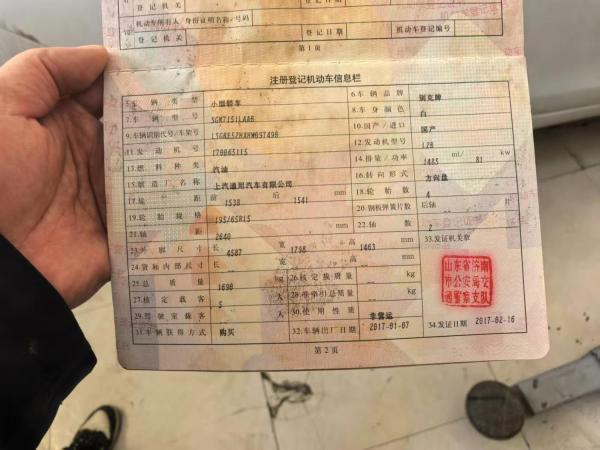 登记机关 登记日期
机动车所有人/身份证明名称/号码
登记机关 登记日期 机动车登记编号
第1页
注册登记机动车信息栏
5.车辆类型 小型轿车 6.车辆品牌 别克牌
7.车辆型号 SGM7151LAAB 8.车身颜色 白
9.车辆识别代号/车架号 10.国产/进口 国产
11.发动机号 170065115 12.发动机型号
13.燃料种类 汽油 14.排量/功率 1485 ml/ 81 kw
15.制造厂名称 上汽通用汽车有限公司 16.转向形式 方向盘
17.轮距 前 1538 后 1541 mm 18.轮胎数 4
19.轮胎规格 195/65R15 mm 20.钢板弹簧片数 后轴 --
21.轴距 2640 mm 22.轴数 2
23.外廓尺寸 长 4587 宽 1798 高 1463 mm 33.发证机关章
24.货厢内部尺寸 长 -- 宽 -- 高 -- mm
25.总质量 1690 kg 26.核定载质量 -- kg
27.核定载客 5 人 28.准牵引总质量 -- kg
29.驾驶室载客 -- 人 30.使用性质 非营运
31.车辆获得方式 购买 32.车辆出厂日期 2017-01-07 34.发证日期 2017-02-16
山东省济南
市公安局交
通警察支队
第2页